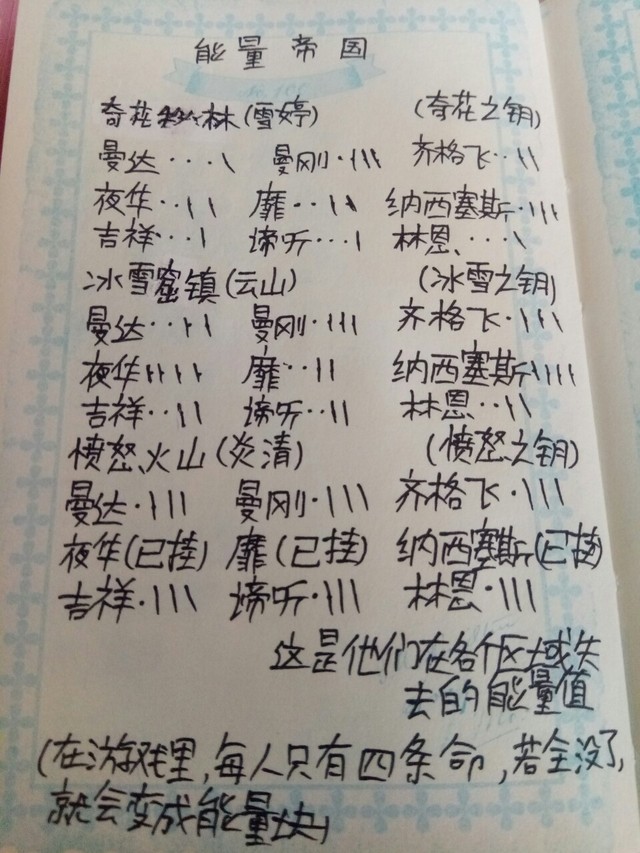 能量帝国
奇花 林(雪婷) (奇花之钥)
曼达···\ 曼刚·\\\ 齐格飞··\\
夜华··\\ 靡··\\ 纳西塞斯·\\\
吉祥···\ 谛听···\ 林恩···\
冰雪窟镇(云山) (冰雪之钥)
曼达··\\ 曼刚·\\\ 齐格飞·\\\
夜华\\\\ 靡··\\ 纳西塞斯\\\\
吉祥··\\ 谛听··\\ 林恩··\\
愤怒火山(炎清) (愤怒之钥)
曼达·\\\ 曼刚·\\\ 齐格飞·\\\
夜华(已挂) 靡(已挂) 纳西塞斯(已挂)
吉祥·\\\ 谛听·\\\ 林恩·\\\
这是他们在各个区域失
去的能量值
(在游戏里,每人只有四条命,若全没了,
就会变成能量块)